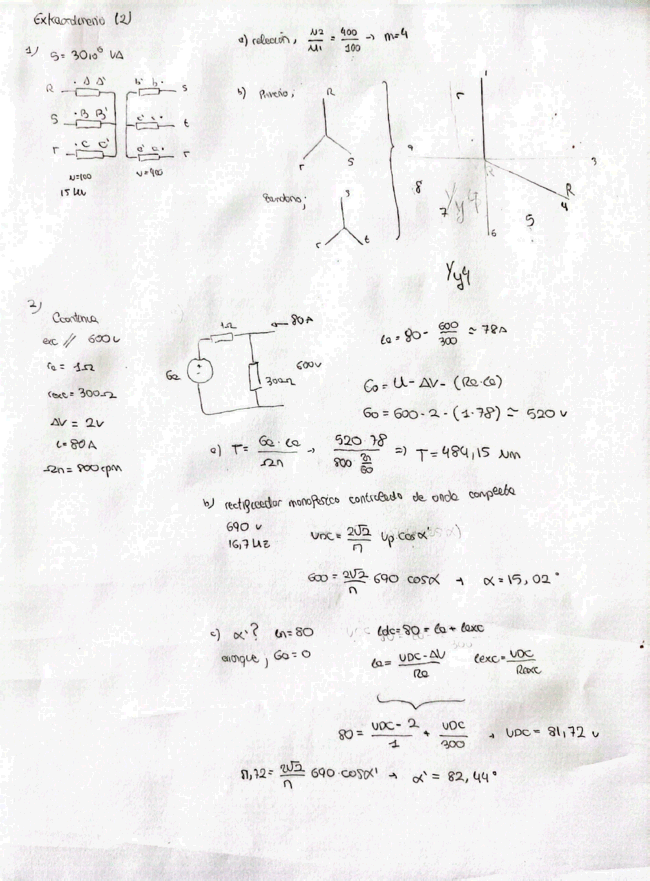 Extraordinario (2)
1) S = 30·10⁶ VA
R · A A' b' b · s
S · B B' c' c · t
T · C C' a' a · r
N=100 N=400
15 kV
a) relación, N2/N1 = 400/100 → m=4
b) Primario;
R
T S
Secundario;
s
r t
1
3
R
4
5
6
7
8
9
Yy4
Yy4
2) Ccontinua
exc // 600 v
re = 1Ω
rexc = 300Ω
ΔV = 2v
i = 80A
Ωn = 800 rpm
1Ω ← 80A
300Ω 600v
ie = 80 - 600/300 ≈ 78A
Eo = U - ΔV - (Re·ie)
Eo = 600 - 2 - (1·78) ≈ 520 v
a) T = Ee·ie/Ωn → 520·78/800 2π/60 ⇒ T = 484,15 Nm
b) rectificador monofásico controlado de onda completa
690 v
16,7 Hz
UDC = 2√2/π Up cosα
600 = 2√2/π 690 cosα → α = 15,02°
c) α'? in=80 idc=80 = ie + iexc
arranque, Eo=0 ie = UDC-ΔV/Re iexc = UDC/Rexc
80 = UDC - 2/1 + UDC/300 → UDC = 81,72 v
81,72 = 2√2/π 690·cosα' → α' = 82,44°